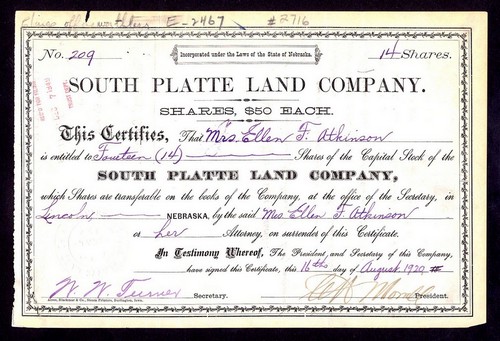 E-2467 #2716
No. 209
Incorporated under the Laws of the State of Nebraska.
14 Shares.
SOUTH PLATTE LAND COMPANY.
SHARES, $50 EACH.
This Certifies, That Mrs. Ellen F. Atkinson
is entitled to Fourteen (14) Shares of the Capital Stock of the
SOUTH PLATTE LAND COMPANY,
which Shares are transferable on the books of the Company, at the office of the Secretary, in
Lincoln NEBRASKA, by the said Mrs Ellen F. Atkinson
or her Attorney, on surrender of this Certificate.
In Testimony Whereof, The President, and Secretary of this Company,
have signed this Certificate, this 16th day of August 1920
W. W. Turner Secretary. President.